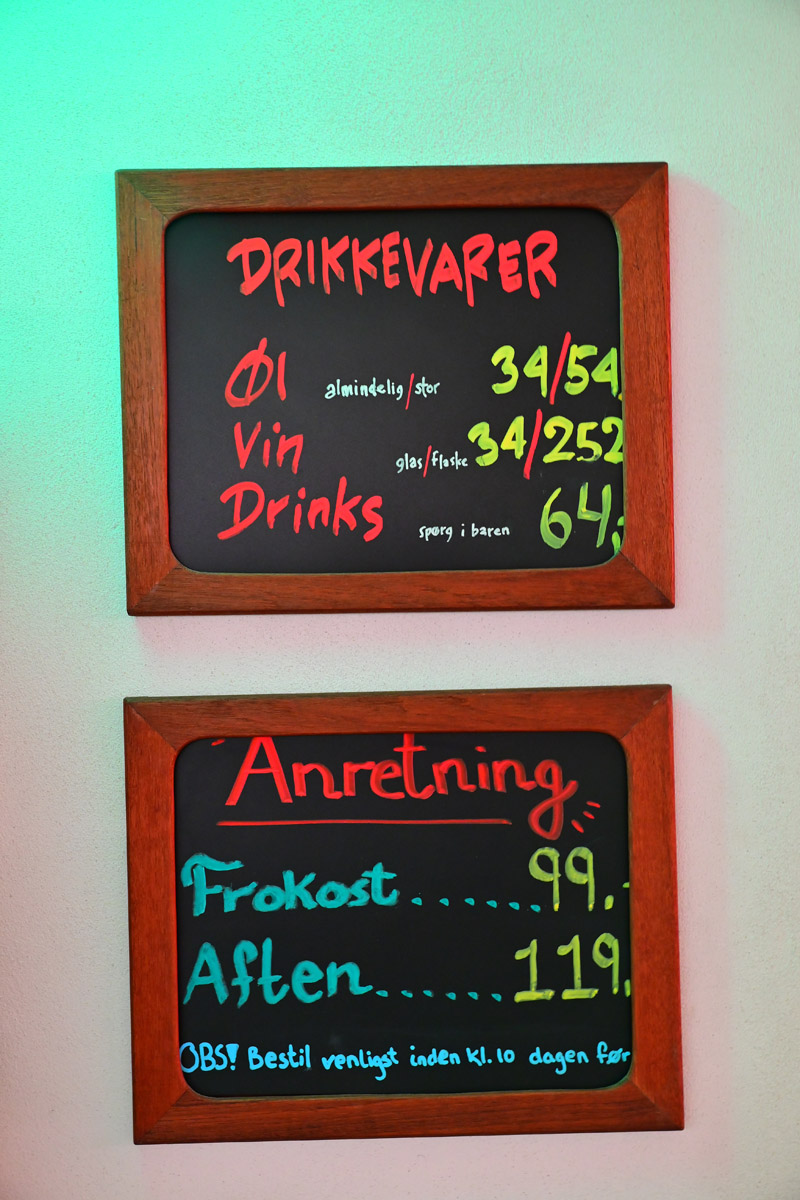 DRIKKEVARER
Øl almindelig/stor 34/54,
Vin glas/flaske 34/252
Drinks spørg i baren 64,-
Anretning
Frokost......99.-
Aften......119.
OBS! Bestil venligst inden kl. 10 dagen før